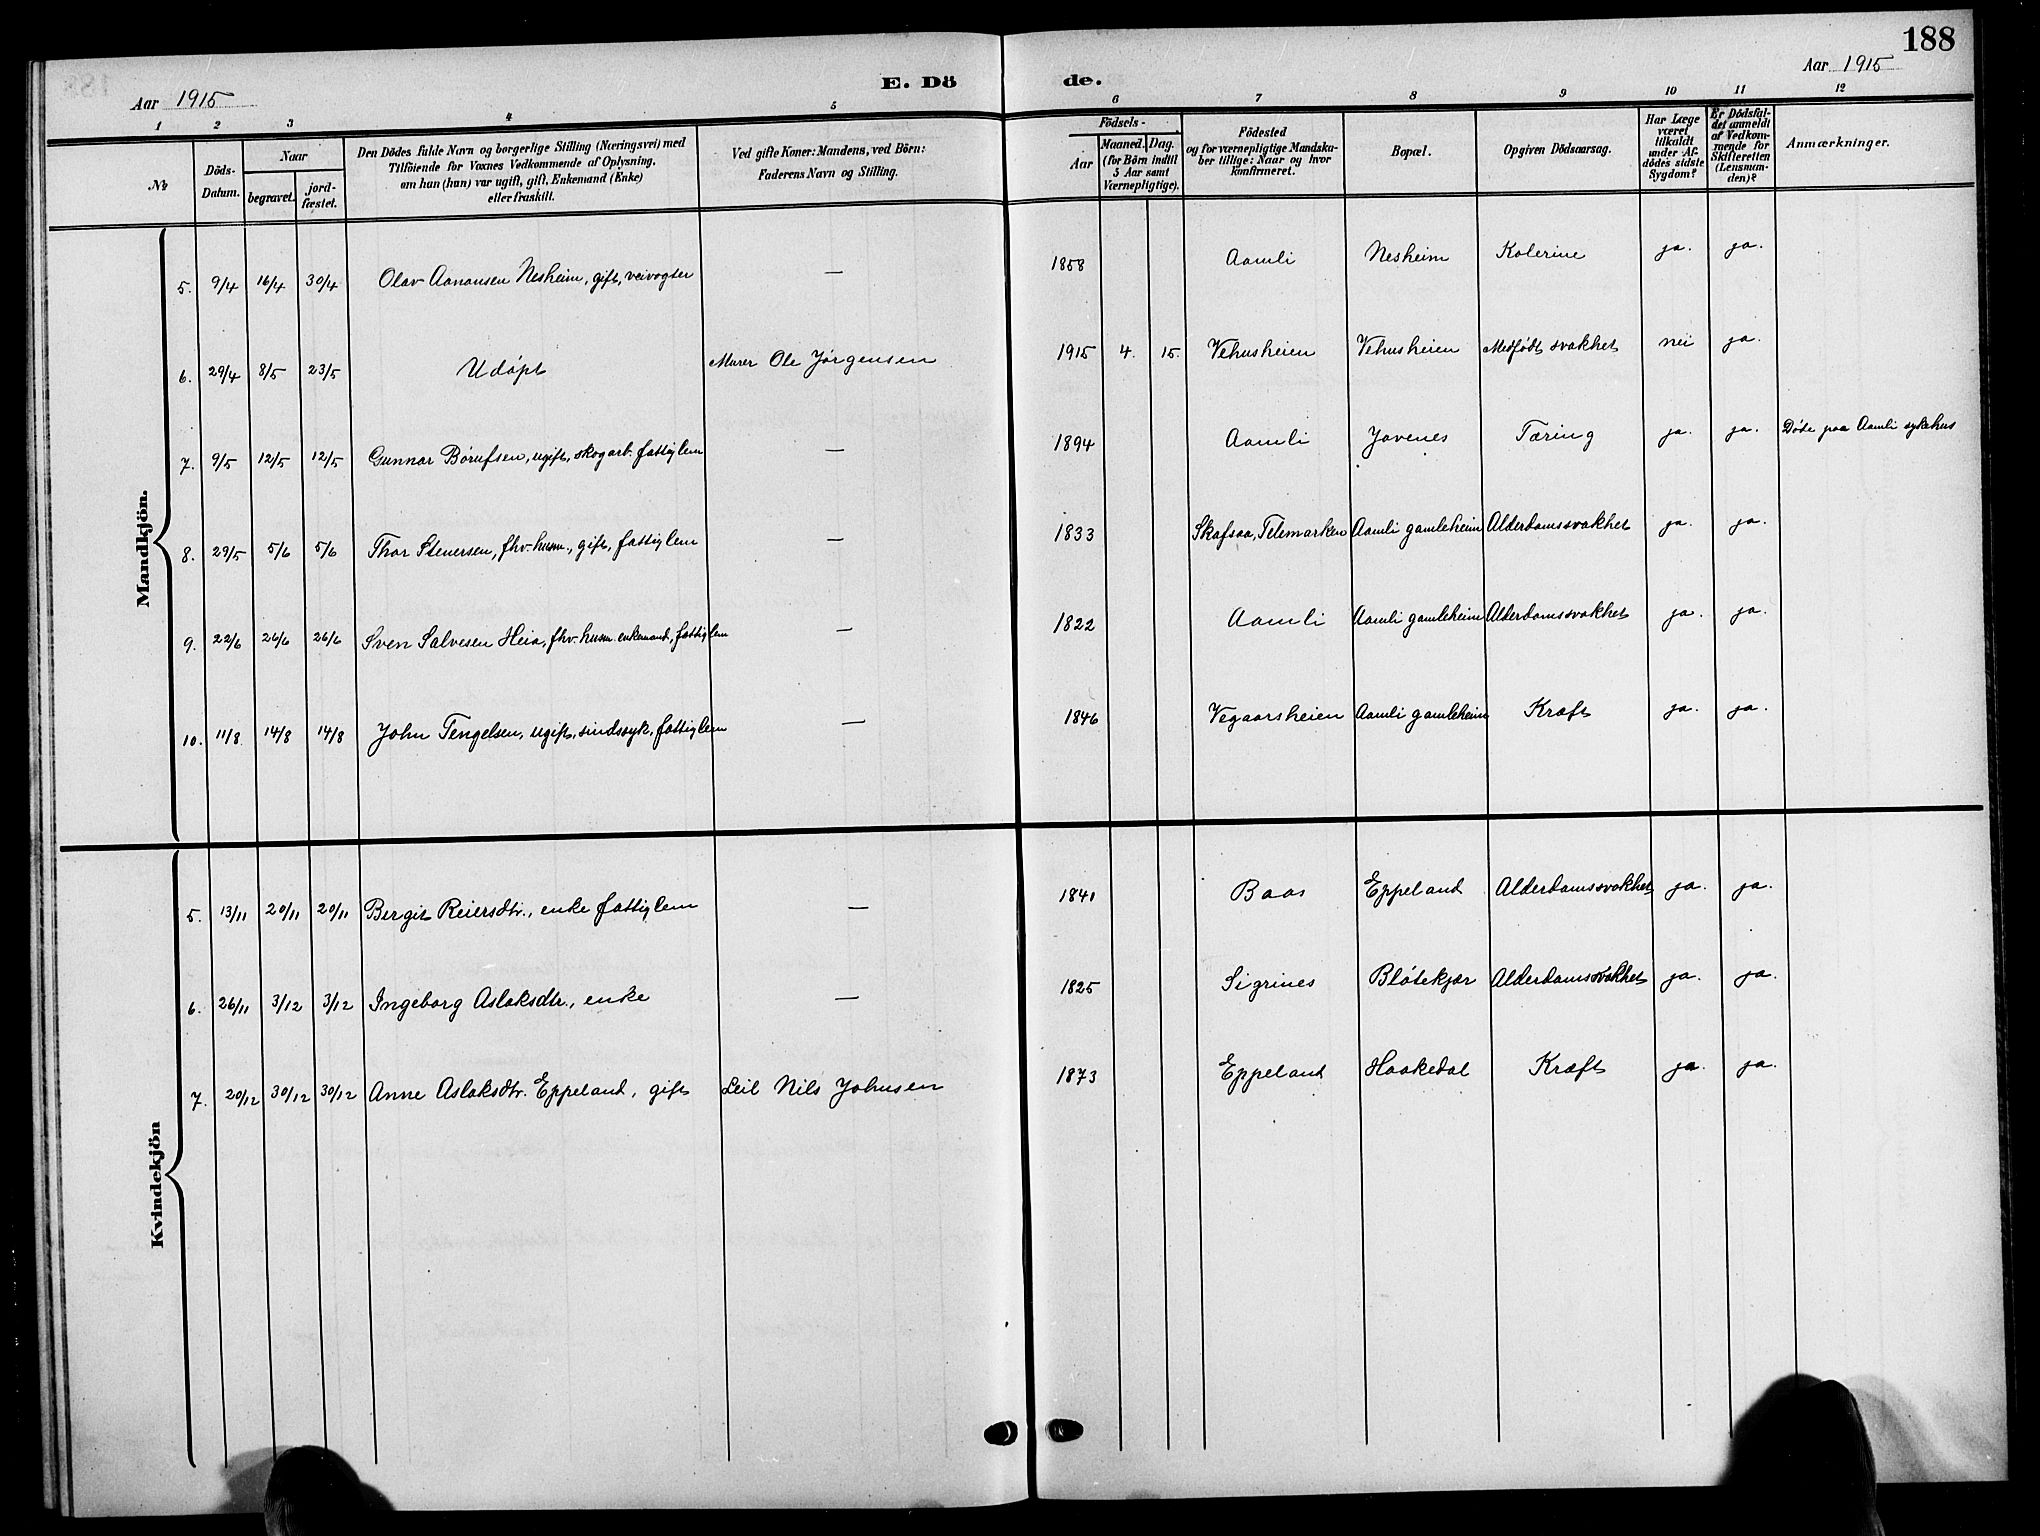 188
Aar 1915 E. Dö de. Aar 1915
1 2 3 4 5 6 7 8 9 10 11 12
№
Döds-
Datum.
Naar
begravet.
jord-
fæstet.
Den Dödes fulde Navn og borgerlige Stilling (Næringsvei) med
Tilföiende for Voxnes Vedkommende af Oplysning,
om han (hun) var ugift, gift, Enkemand (Enke)
eller fraskilt.
Ved gifte Koner: Mandens, ved Börn:
Faderens Navn og Stilling.
Födsels-
Aar
Maaned. Dag.
(for Börn indtil
5 Aar samt
Værnepligtige).
Födested
og for værnepligtige Mandska-
ber tillige: Naar og hvor
konfirmeret.
Bopæl.
Opgiven Dödsaarsag.
Har Læge
været
tilkaldt
under Af-
dödes sidste
Sygdom?
Er Dödsfal-
det anmeldt
af Vedkom-
mende for
Skifteretten
(Lensman-
den)?
Anmærkninger.
Mandkjön.
5. 9/4 16/4 30/4 Olav Aanonsen Nesheim, gift, veivogter — 1858 Aamli Nesheim Kolerine ja. ja.
6. 29/4 8/5 23/5 Udöpt Murer Ole Jørgensen 1915 4. 15. Vehusheien Vehusheien Medfödt svakhet nei ja.
7. 9/5 12/5 12/5 Gunnar Børufsen, ugift, skogarb. fattiglem — 1894 Aamli Jovenes Tæring ja. ja. Døde paa Aamli sykehus
8. 29/5 5/6 5/6 Thor Stenersen, fhv. husm., gift, fattiglem — 1833 Skafsaa, Telemarken Aamli gamleheim Alderdomssvakhet ja. ja.
9. 22/6 26/6 26/6 Sven Salvesen Heia, fhv. husm. enkemand, fattiglem — 1822 Aamli Aamli gamleheim Alderdomssvakhet ja. ja.
10. 11/8 14/8 14/8 John Tengelsen, ugift, sindssyk, fattiglem — 1846 Vegaarsheien Aamli gamleheim Kræft ja. ja.
Kvindekjön
5. 13/11 20/11 20/11 Bergit Reiersdtr., enke fattiglem — 1840 Baas Eppeland Alderdomssvakhet ja. ja.
6. 26/11 3/12 3/12 Ingeborg Aslaksdtr., enke — 1825 Sigrines Bløtekjær Alderdomssvakhet ja. ja.
7. 20/12 30/12 30/12 Anne Aslaksdtr. Eppeland, gift Leil Nils Johnsen 1873 Eppeland Haakedal Kræft ja. ja.